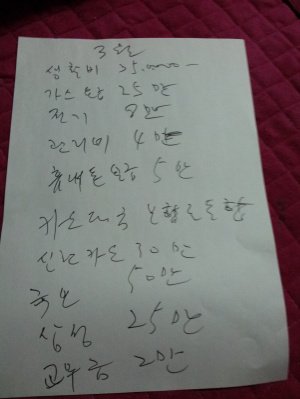 3월
생활비 25.0000-
가스 요금 25만
전기 8만
관리비 4만
휴대폰 요금 5만
카드대금 보험료
신한카드 30만
국민 50만
삼성 25만
교무금 2만